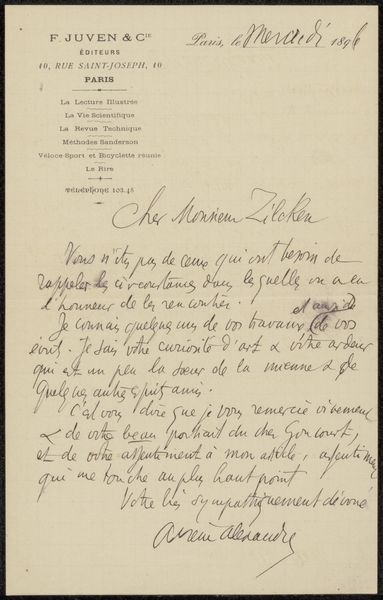 F. JUVEN & Cie
ÉDITEURS
10, RUE SAINT-JOSEPH, 10
PARIS
La Lecture Illustrée
La Vie Scientifique
La Revue Technique
Méthodes Sanderson
Véloce-Sport et Bicyclette réunie
Le Rire
TÉLÉPHONE 103.45
Paris, le Mercredi 1896
Cher Monsieur Zilcken
Vous n'êtes pas de ceux qui ont besoin de
rappeler les circonstances dans lesquelles on a eu
l'honneur de les rencontrer.
et aussi de
Je connais quelques uns de vos travaux de vos
écrits. Je sais votre curiosité d'art & votre ardeur
qui est un peu la sœur de la mienne & de
quelques autres esprits amis.
C'est vous dire que je vous remercie vivement
& de votre beau portrait du cher Goncourt,
et de votre assentiment à mon article, assentiment
qui me touche au plus haut point
Votre très sympathiquement dévoué
Arsène Alexandre